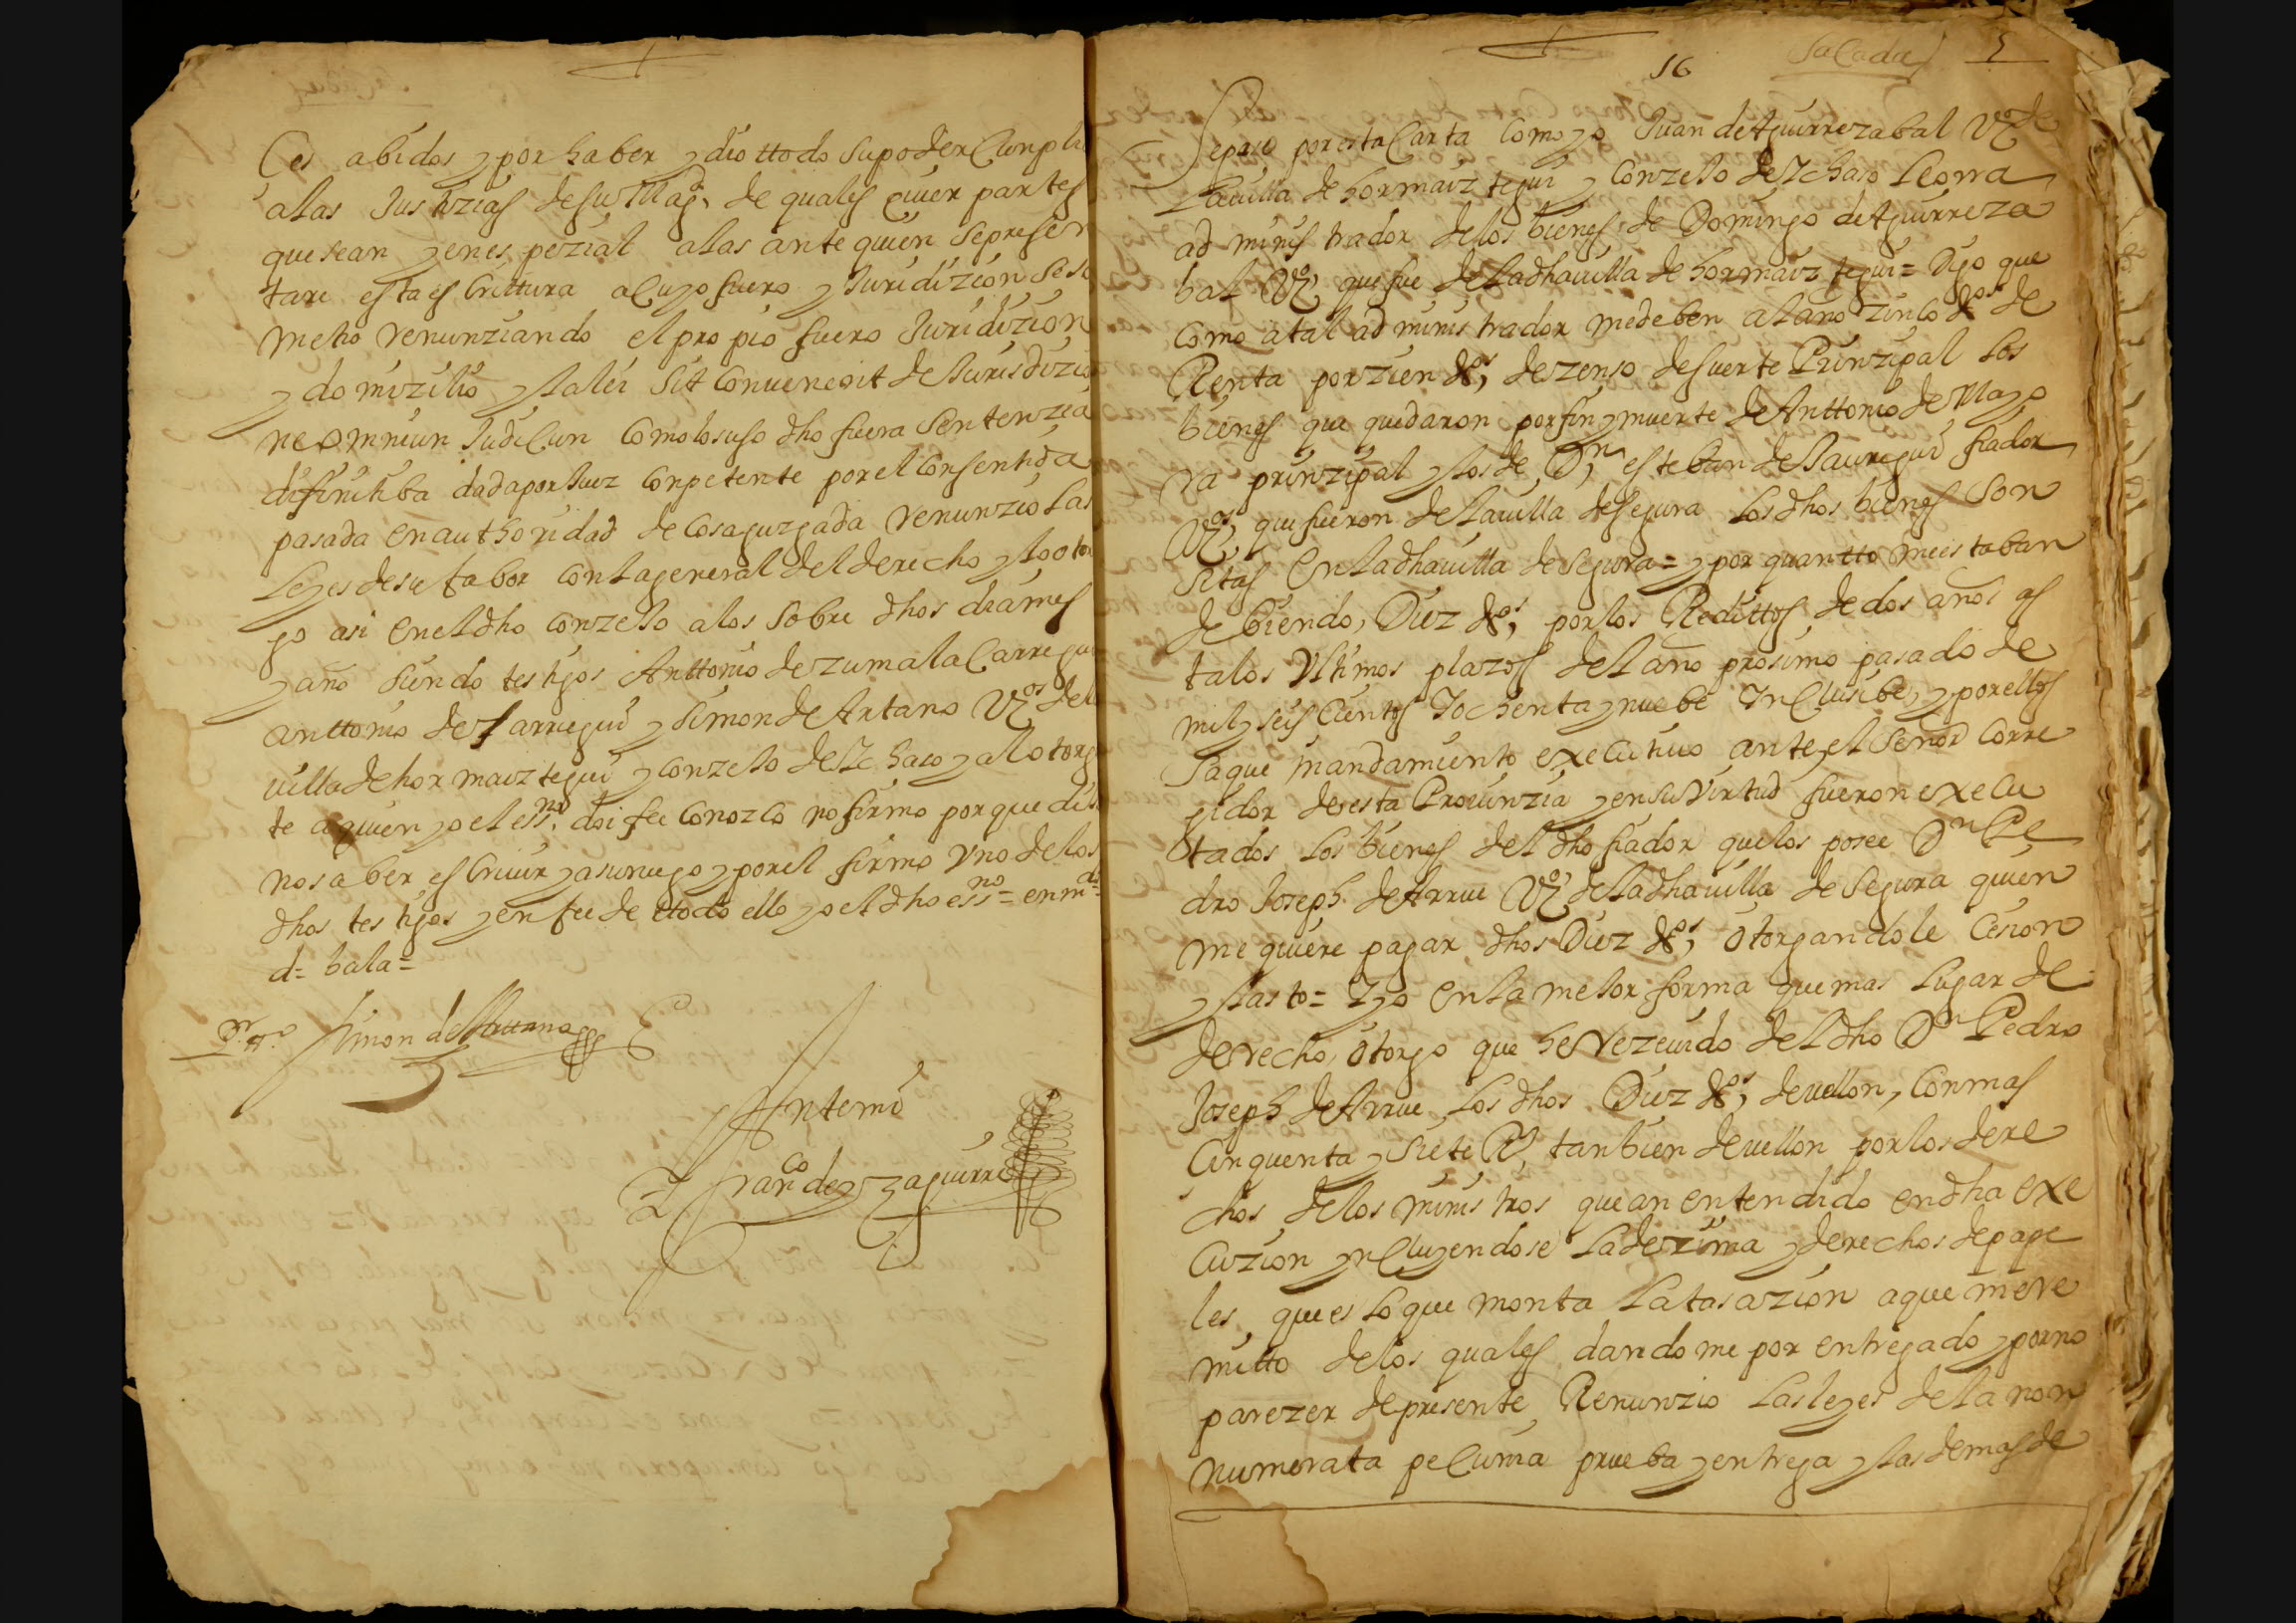 ces abidos y por haber y dio ttodo su poder Cunpli
alas Justizias de su Magd. de quales quier partes
que sean y en espezial alas ante quien se presen
tare esta escrittura a Cuyo fuero y Juridizion se so
metio renunziando el propio fuero Juridizion
y domizilio y la lei sit convenerit de Jurisdizio
ne omniun Judicun como lo suso dho fuera sentenzia
difinitiba dada por Juez conpetente por el consentida
pasada en authoridad de cosa juzgada renunzio las
leyes de su fabor con la general del derecho y lo otor
go asi en el dho conzejo a los sobre dhos dia mes
y año siendo testigos Anttonio de zumalaCarregui
anttonio de Larregui y Simon de Artano Vos de la
villa de hormaiztegui y conzejo de Ichaso y al otorg
te a quien yo el essno. doi fee conozco no firmo por que dijo
no saber escriuir y a su ruego y por el firmo Vno de los
dhos testigos y en fee de ttodo ello yo el dho essno = enmdo
d= bala=
Simon de Artano
Antemi
Franco de yzaguirre
16 Sacada 5
Sepase por esta Carta como yo Juan de Aguirrezabal Vo de
la villa de hormaiztegui y Conzejo de Ichaso Leona
administrador de los bienes de Domingo de Aguirreza
bal Vo que fue de la dha villa de hormaiztegui = Digo que
como a tal administrador me deben al año zinco dos de
Renta por zien dos, de zenso de suerte Prinzipal los
bienes que quedaron por fin y muerte de Anttonio de Mayo
ra prinzipal y los de Dn esteban de Jauregui fiador
Vos, que fueron de la villa de Segura los dhos bienes son
sitos en la dha villa de Segura = y por quantto me estaban
debiendo, Diez dos, por los Redittos de dos años as
ta los Vltimos plazos del año prosimo pasado de
mil y seis Cientos y ochenta y nuebe ynclusibe, y por ellos
saque mandamiento executiuo ante el Señor Corre
gidor de esta Prouinzia y en su Virtud fueron execu
tados los bienes del dho fiador que los posee Dn Pe
dro Joseph de Arrue Vo de la dha villa de Segura quien
me quiere pagar dhos Diez dos, otorgandole Cesion
y lasto = Y yo en la mejor forma que mas lugar de
derecho, otorgo que he rezeuido del dho Dn Pedro
Joseph de Arrue los dhos Diez dos, de vellon, con mas
Cinquenta y siete Rs tanbien de vellon por los dere
chos de los ministros que an entendido en dha exe
cuzion ynCluyendose la dezima y derechos de pape
les, que es lo que monta la tasazion a que me re
mitto de los quales dandome por entregado y por no
parezer de presente Renunzio las leyes de la non
numerata pecunia prueba y entrega y las demas de